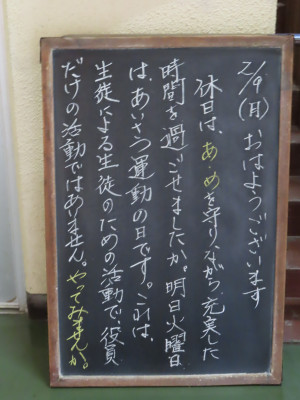 2/9(月)おはようございます
休日は、あめを守りながら、充実した
時間を過ごせましたか。明日火曜日
は、あいさつ運動の日です。これは、
生徒による生徒のための活動で、役員
だけの活動ではありません。やってみませんか。